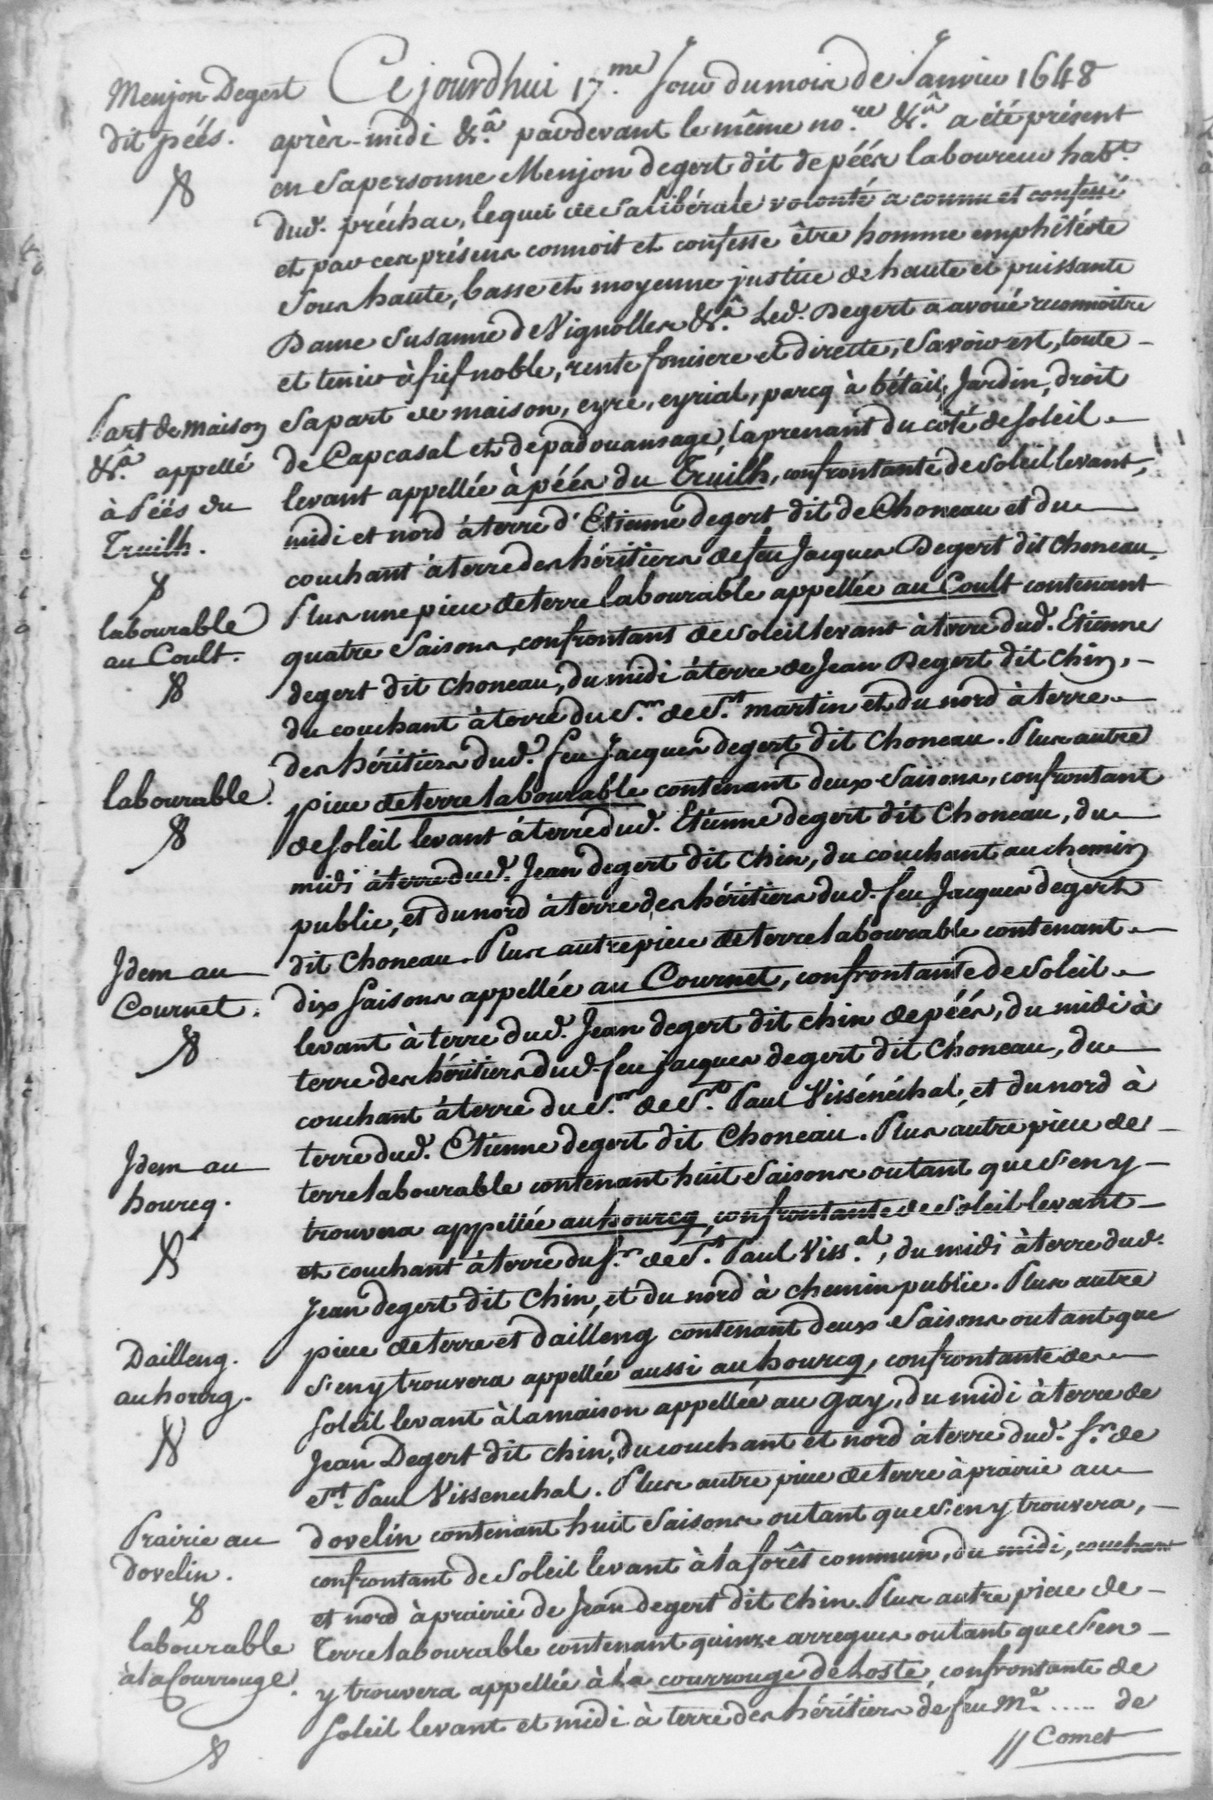 Menjon Degert
dit péés.
Ce jourdhui 17.me Jour du mois de Janvier 1648
après-midi &.a pardevant le même no.re &.a a été présent
en Sa personne Menjon degert dit de péés laboureur hab.t
dud. préchac, lequel de Sa libérale volonté a connu et confessé
et par ces présens connoit et confesse être homme emphitéote
Sous haute, basse et moyenne justice de haute et puissante
Dame Susanne de Vignolles &.a Led. Degert a avoué reconnoitre
et tenir à fief noble, rente fonciere et directe, Savoir est, toute
Part de maison
&.a appellé
à Péés du
Truilh.
Sa part de maison, eyre, eyrial, parcq à bétail, Jardin, droit
de Capcasal et de padouansage, la prenant du coté de Soleil
levant appellée à péés du Truilh, confrontante de Soleil levant,
midi et nord à terre d'Etienne degert dit de Choneau et du
couchant à terre des héritiers de feu Jacques Degert dit Choneau.
labourable
au Coult.
Plus une piece de terre labourable appellée au Coult contenant
quatre Saisons, confrontant de Soleil levant à terre dud. Etienne
degert dit Choneau, du midi à terre de Jean Degert dit Chin,
du couchant à terre du S.r de S.t martin et du nord à terre
des héritiers dud. feu Jacques degert dit Choneau. Plus autre
labourable.
piece de terre labourable contenant deux Saisons, confrontant
de Soleil levant à terre dud. Etienne degert dit Choneau, du
midi à terre dud. Jean degert dit Chin, du couchant au chemin
public, et du nord à terre des héritiers dud. feu Jacques degert
Idem au
Cournet.
dit Choneau. Plus autre piece de terre labourable contenant
dix Saisons appellée au Cournet, confrontante de Soleil
levant à terre dud. Jean degert dit Chin de péés, du midi à
terre des héritiers dud. feu jacques degert dit Choneau, du
couchant à terre du S.r de S.t Paul Vissénéchal, et du nord à
Idem au
hourcq.
terre dud. Etienne degert dit Choneau. Plus autre piece de
terre labourable contenant huit Saisons ou tant que S'en y
trouvera appellée au hourcq, confrontante de Soleil levant
et couchant à terre du S.r de S.t Paul Viss.al, du midi à terre dud.
Jean degert dit Chin, et du nord à chemin public. Plus autre
Dailleng.
au hourq.
piece de terre et dailleng contenant deux Saisons ou tant que
S'en y trouvera appellée aussi au hourcq, confrontante de
Soleil levant à la maison appellée au Gay, du midi à terre de
Jean Degert dit Chin, du couchant et nord à terre dud. S.r de
S.t Paul Vissenechal. Plus autre piece de terre à prairie au
Prairie au
dovelin.
dovelin contenant huit Saisons ou tant que S'en y trouvera,
confrontant de Soleil levant à la forêt commun, du midi, couchant
et nord à prairie de Jean degert dit Chin. Plus autre piece de
labourable
à la Courrouge.
Terre labourable contenant quinze arregues ou tant que S'en
y trouvera appellée à la courrouge de hoste, confrontante de
Soleil levant et midi à terre des héritiers de feu M.e ..... de
Comet